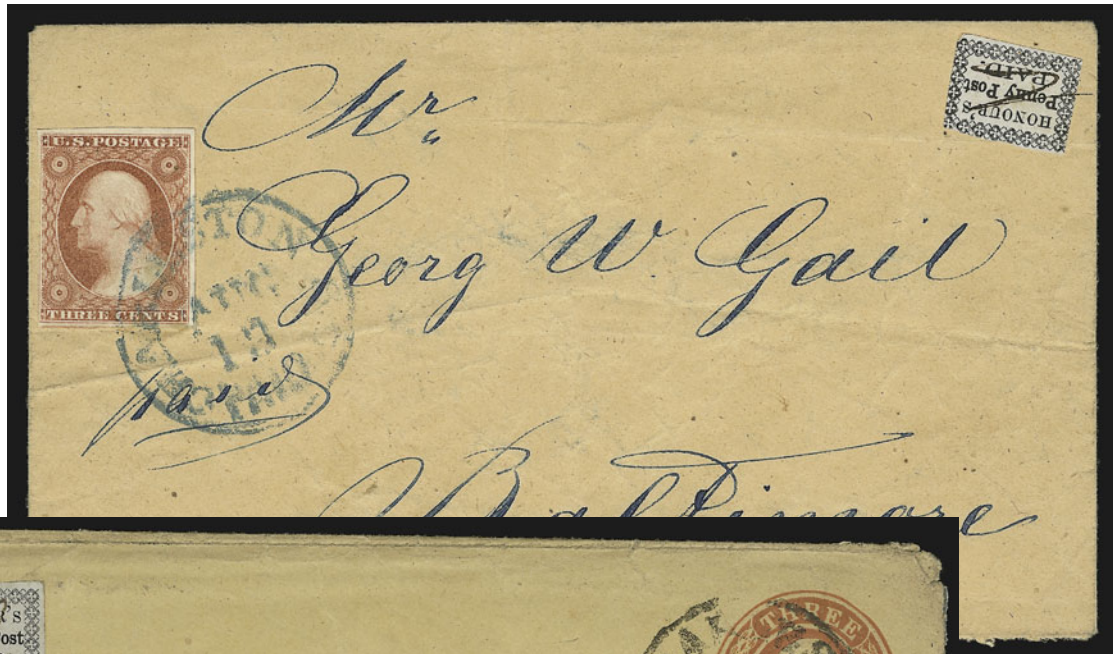 U.S. POSTAGE
THREE CENTS
Mr
HONOUR'S
Penny Post
PAID.
Georg W. Gail
AUG
13
paid
Baltimore
's
Post
THREE